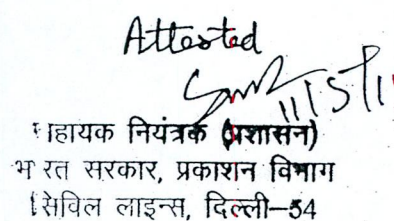 Attested
11/5/11
सहायक नियंत्रक (प्रशासन)
भारत सरकार, प्रकाशन विभाग
सिविल लाइन्स, दिल्ली-54